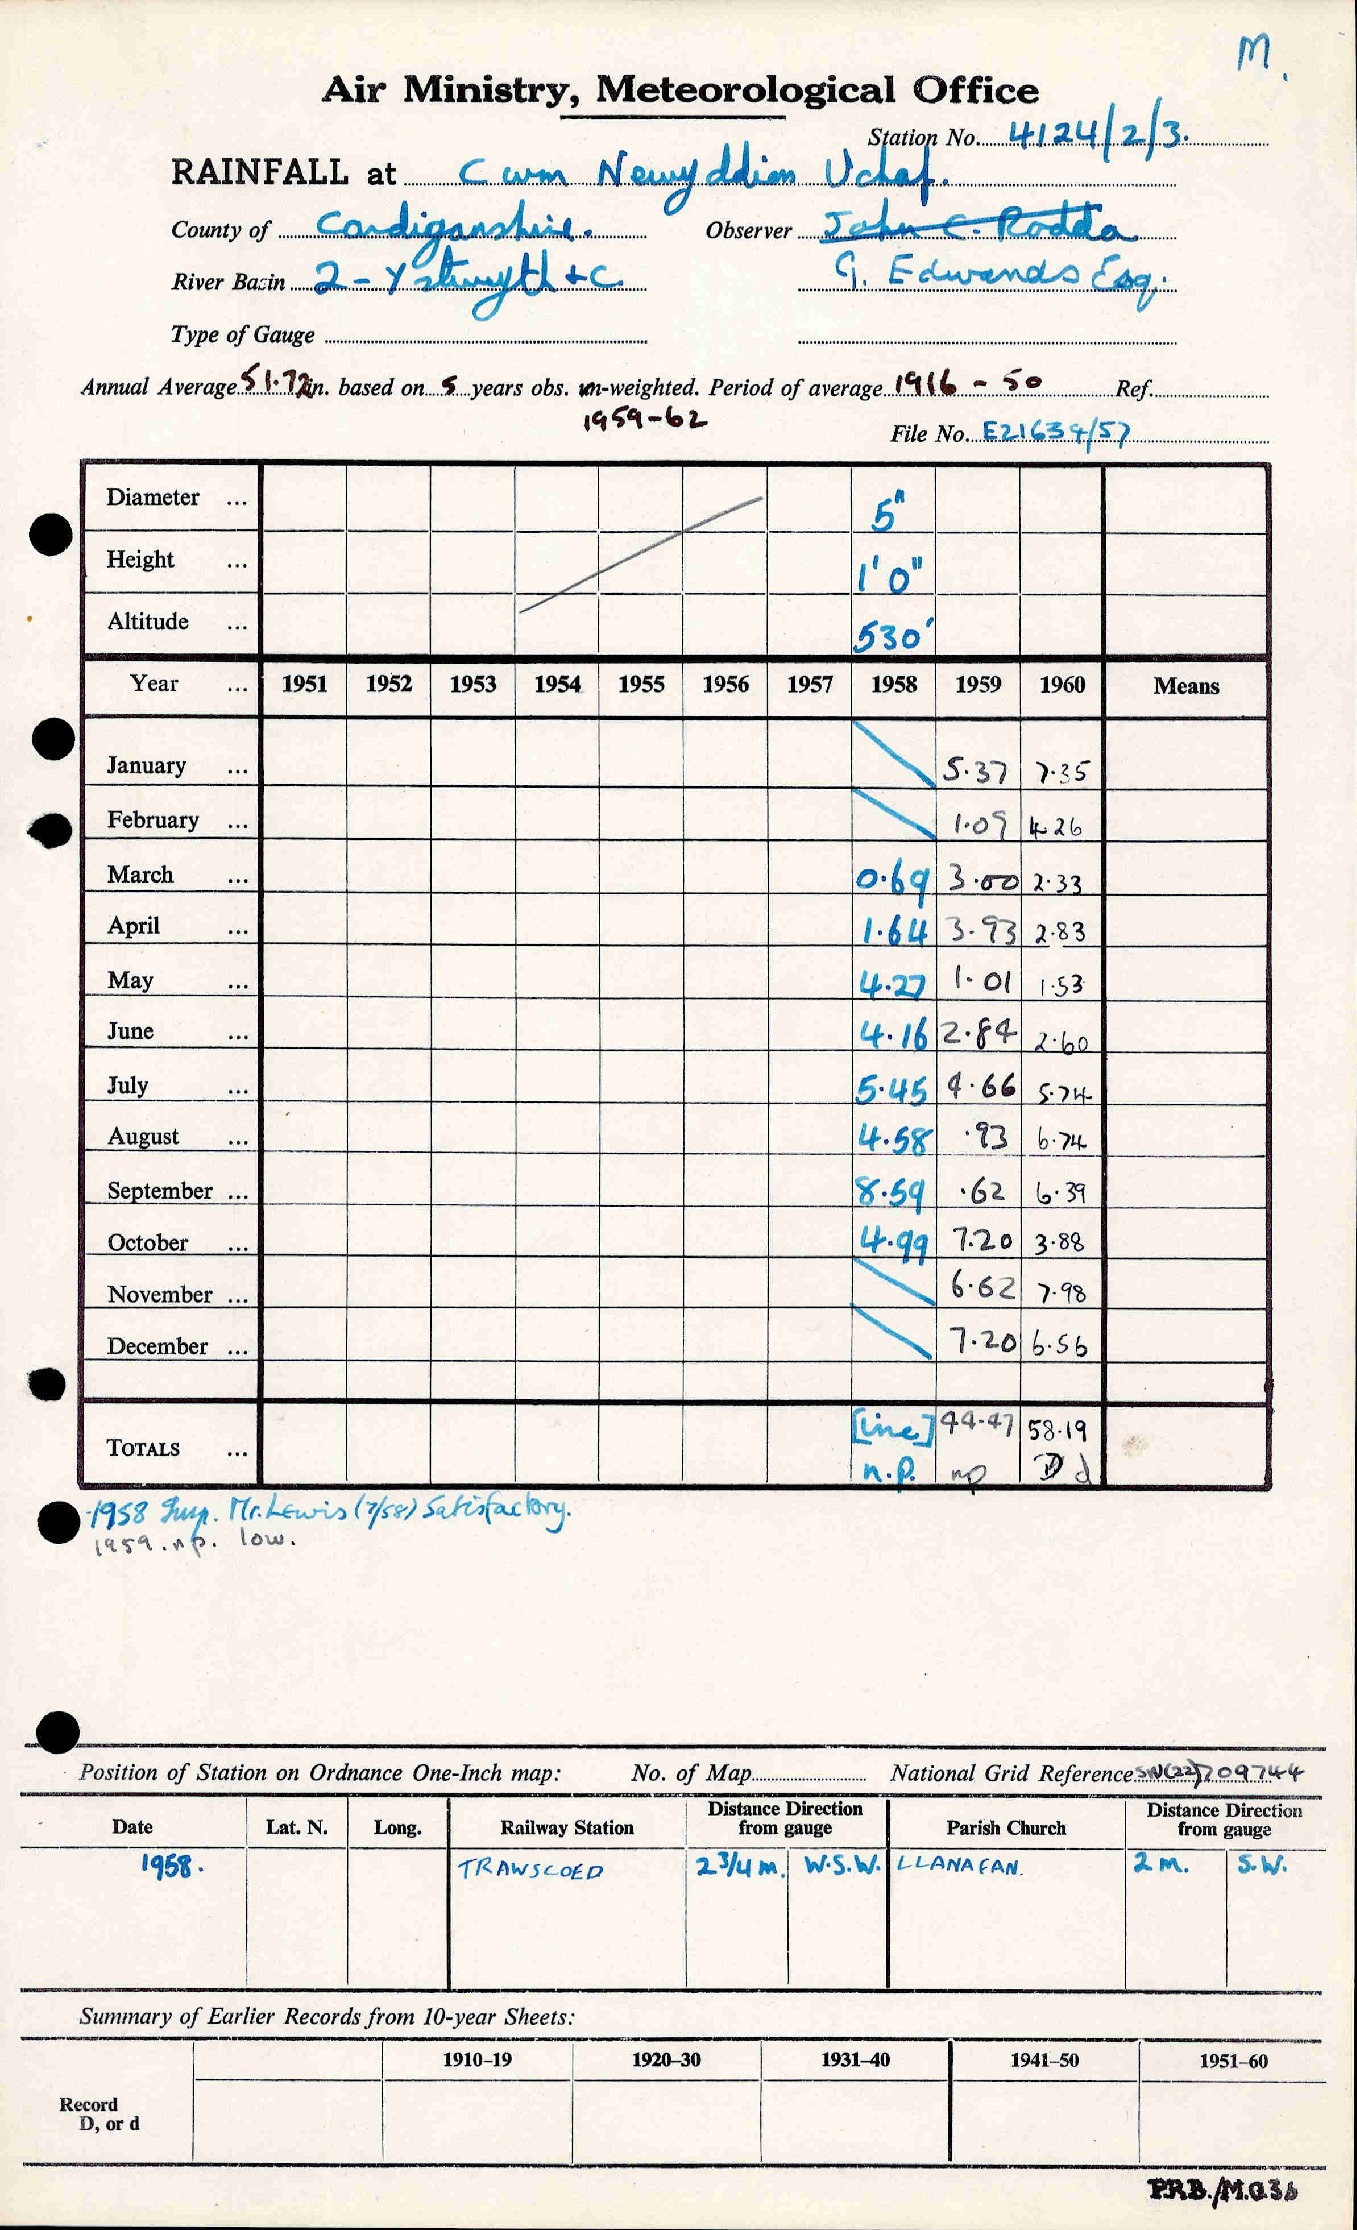 M.
Air Ministry, Meteorological Office
Station No. 4124/2/3.
RAINFALL at Cwm Newyddion Uchaf.
County of Cardiganshire. Observer John C. Rodda
River Basin 2 - Ystwyth + C. G. Edwards Esq.
Type of Gauge
Annual Average 51.72 in. based on 5 years obs. un-weighted. Period of average 1916 - 50 Ref.
1959-62
File No. E21634/57
Diameter ... 5"
Height ... 1' 0"
Altitude ... 530'
Year ... 1951 1952 1953 1954 1955 1956 1957 1958 1959 1960 Means
January ... 5.37 7.35
February ... 1.09 4.26
March ... 0.69 3.00 2.33
April ... 1.64 3.93 2.83
May ... 4.27 1.01 1.53
June ... 4.16 2.84 2.60
July ... 5.45 4.66 5.74
August ... 4.58 .93 6.74
September ... 8.59 .62 6.39
October ... 4.99 7.20 3.88
November ... 6.62 7.98
December ... 7.20 6.56
TOTALS ... [inc] 44.47 58.19
n.p. np D d
1958 Insp. Mr. Lewis (7/58) Satisfactory.
1959. np. low.
Position of Station on Ordnance One-Inch map: No. of Map National Grid Reference SN(22)709744
Date Lat. N. Long. Railway Station Distance Direction from gauge Parish Church Distance Direction from gauge
1958. TRAWSCOED 2 3/4 m. W.S.W. LLANAFAN. 2 m. S.W.
Summary of Earlier Records from 10-year Sheets:
1910–19 1920–30 1931–40 1941–50 1951–60
Record
D, or d
P.R.B./M.O.36